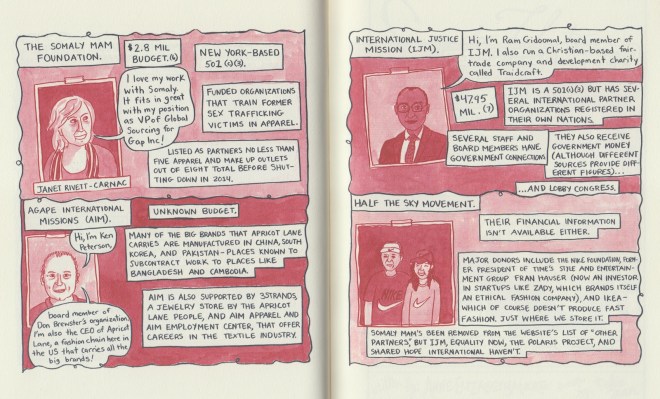 THE SOMALY MAM
FOUNDATION.
$2.8 MIL
BUDGET.(6)
NEW YORK-BASED
501(c)(3).
I love my work
with Somaly.
It fits in great
with my position
as VP of Global
Sourcing for
Gap Inc!
JANET RIVETT-CARNAC
FUNDED ORGANIZATIONS
THAT TRAIN FORMER
SEX TRAFFICKING
VICTIMS IN APPAREL.
LISTED AS PARTNERS NO LESS THAN
FIVE APPAREL AND MAKE UP OUTLETS
OUT OF EIGHT TOTAL BEFORE SHUT-
TING DOWN IN 2014.
AGAPE INTERNATIONAL
MISSIONS (AIM).
UNKNOWN BUDGET.
Hi, I'm Ken
Peterson,
board member of
Don Brewster's organization.
I'm also the CEO of Apricot
Lane, a fashion chain here in
the US that carries all the
big brands!
MANY OF THE BIG BRANDS THAT APRICOT LANE
CARRIES ARE MANUFACTURED IN CHINA, SOUTH
KOREA, AND PAKISTAN-PLACES KNOWN TO
SUBCONTRACT WORK TO PLACES LIKE
BANGLADESH AND CAMBODIA.
AIM IS ALSO SUPPORTED BY 3STRANDS,
A JEWELRY STORE BY THE APRICOT
LANE PEOPLE, AND AIM APPAREL AND
AIM EMPLOYMENT CENTER, THAT OFFER
CAREERS IN THE TEXTILE INDUSTRY.
INTERNATIONAL JUSTICE
MISSION (IJM).
Hi, I'm Ram Gidoomal, board member of
IJM. I also run a Christian-based fair-
trade company and development charity
called Traidcraft.
$47.95
MIL.(7)
IJM IS A 501(c)(3) BUT HAS SEV-
ERAL INTERNATIONAL PARTNER
ORGANIZATIONS REGISTERED IN
THEIR OWN NATIONS.
SEVERAL STAFF AND
BOARD MEMBERS HAVE
GOVERNMENT CONNECTIONS.
THEY ALSO RECEIVE
GOVERNMENT MONEY
(ALTHOUGH DIFFERENT
SOURCES PROVIDE DIF-
FERENT FIGURES)...
...AND LOBBY CONGRESS.
HALF THE SKY MOVEMENT.
THEIR FINANCIAL INFORMATION
ISN'T AVAILABLE EITHER.
NIKE
MAJOR DONORS INCLUDE THE NIKE FOUNDATION, FORM-
ER PRESIDENT OF TIME'S STYLE AND ENTERTAIN-
MENT GROUP FRAN HAUSER (NOW AN INVESTOR
IN STARTUPS LIKE ZADY, WHICH BRANDS ITSELF
AN ETHICAL FASHION COMPANY), AND IKEA-
WHICH OF COURSE DOESN'T PRODUCE FAST
FASHION. JUST WHERE WE STORE IT.
SOMALY MAM'S BEEN REMOVED FROM THE WEBSITE'S LIST OF "OTHER
PARTNERS," BUT IJM, EQUALITY NOW, THE POLARIS PROJECT, AND
SHARED HOPE INTERNATIONAL HAVEN'T.